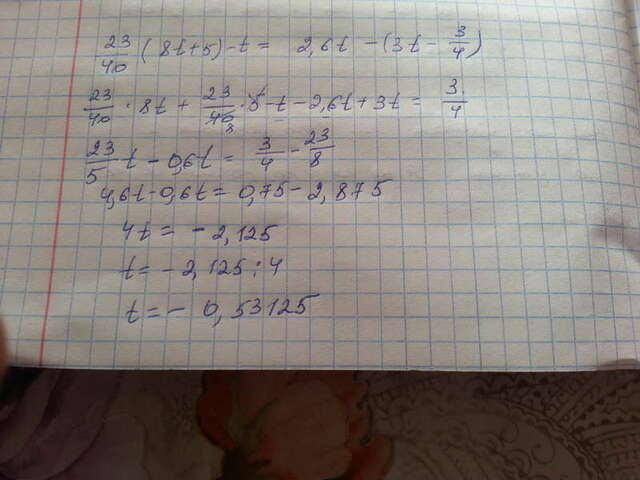 23/40 (8t+5)-t = 2,6t -(3t- 3/4)
23/40 · 8t + 23/40 · 5 - t - 2,6t + 3t = 3/4
23/5 t - 0,6t = 3/4 - 23/8
4,6t - 0,6t = 0,75 - 2,875
4t = - 2,125
t = - 2,125 : 4
t = - 0,53125